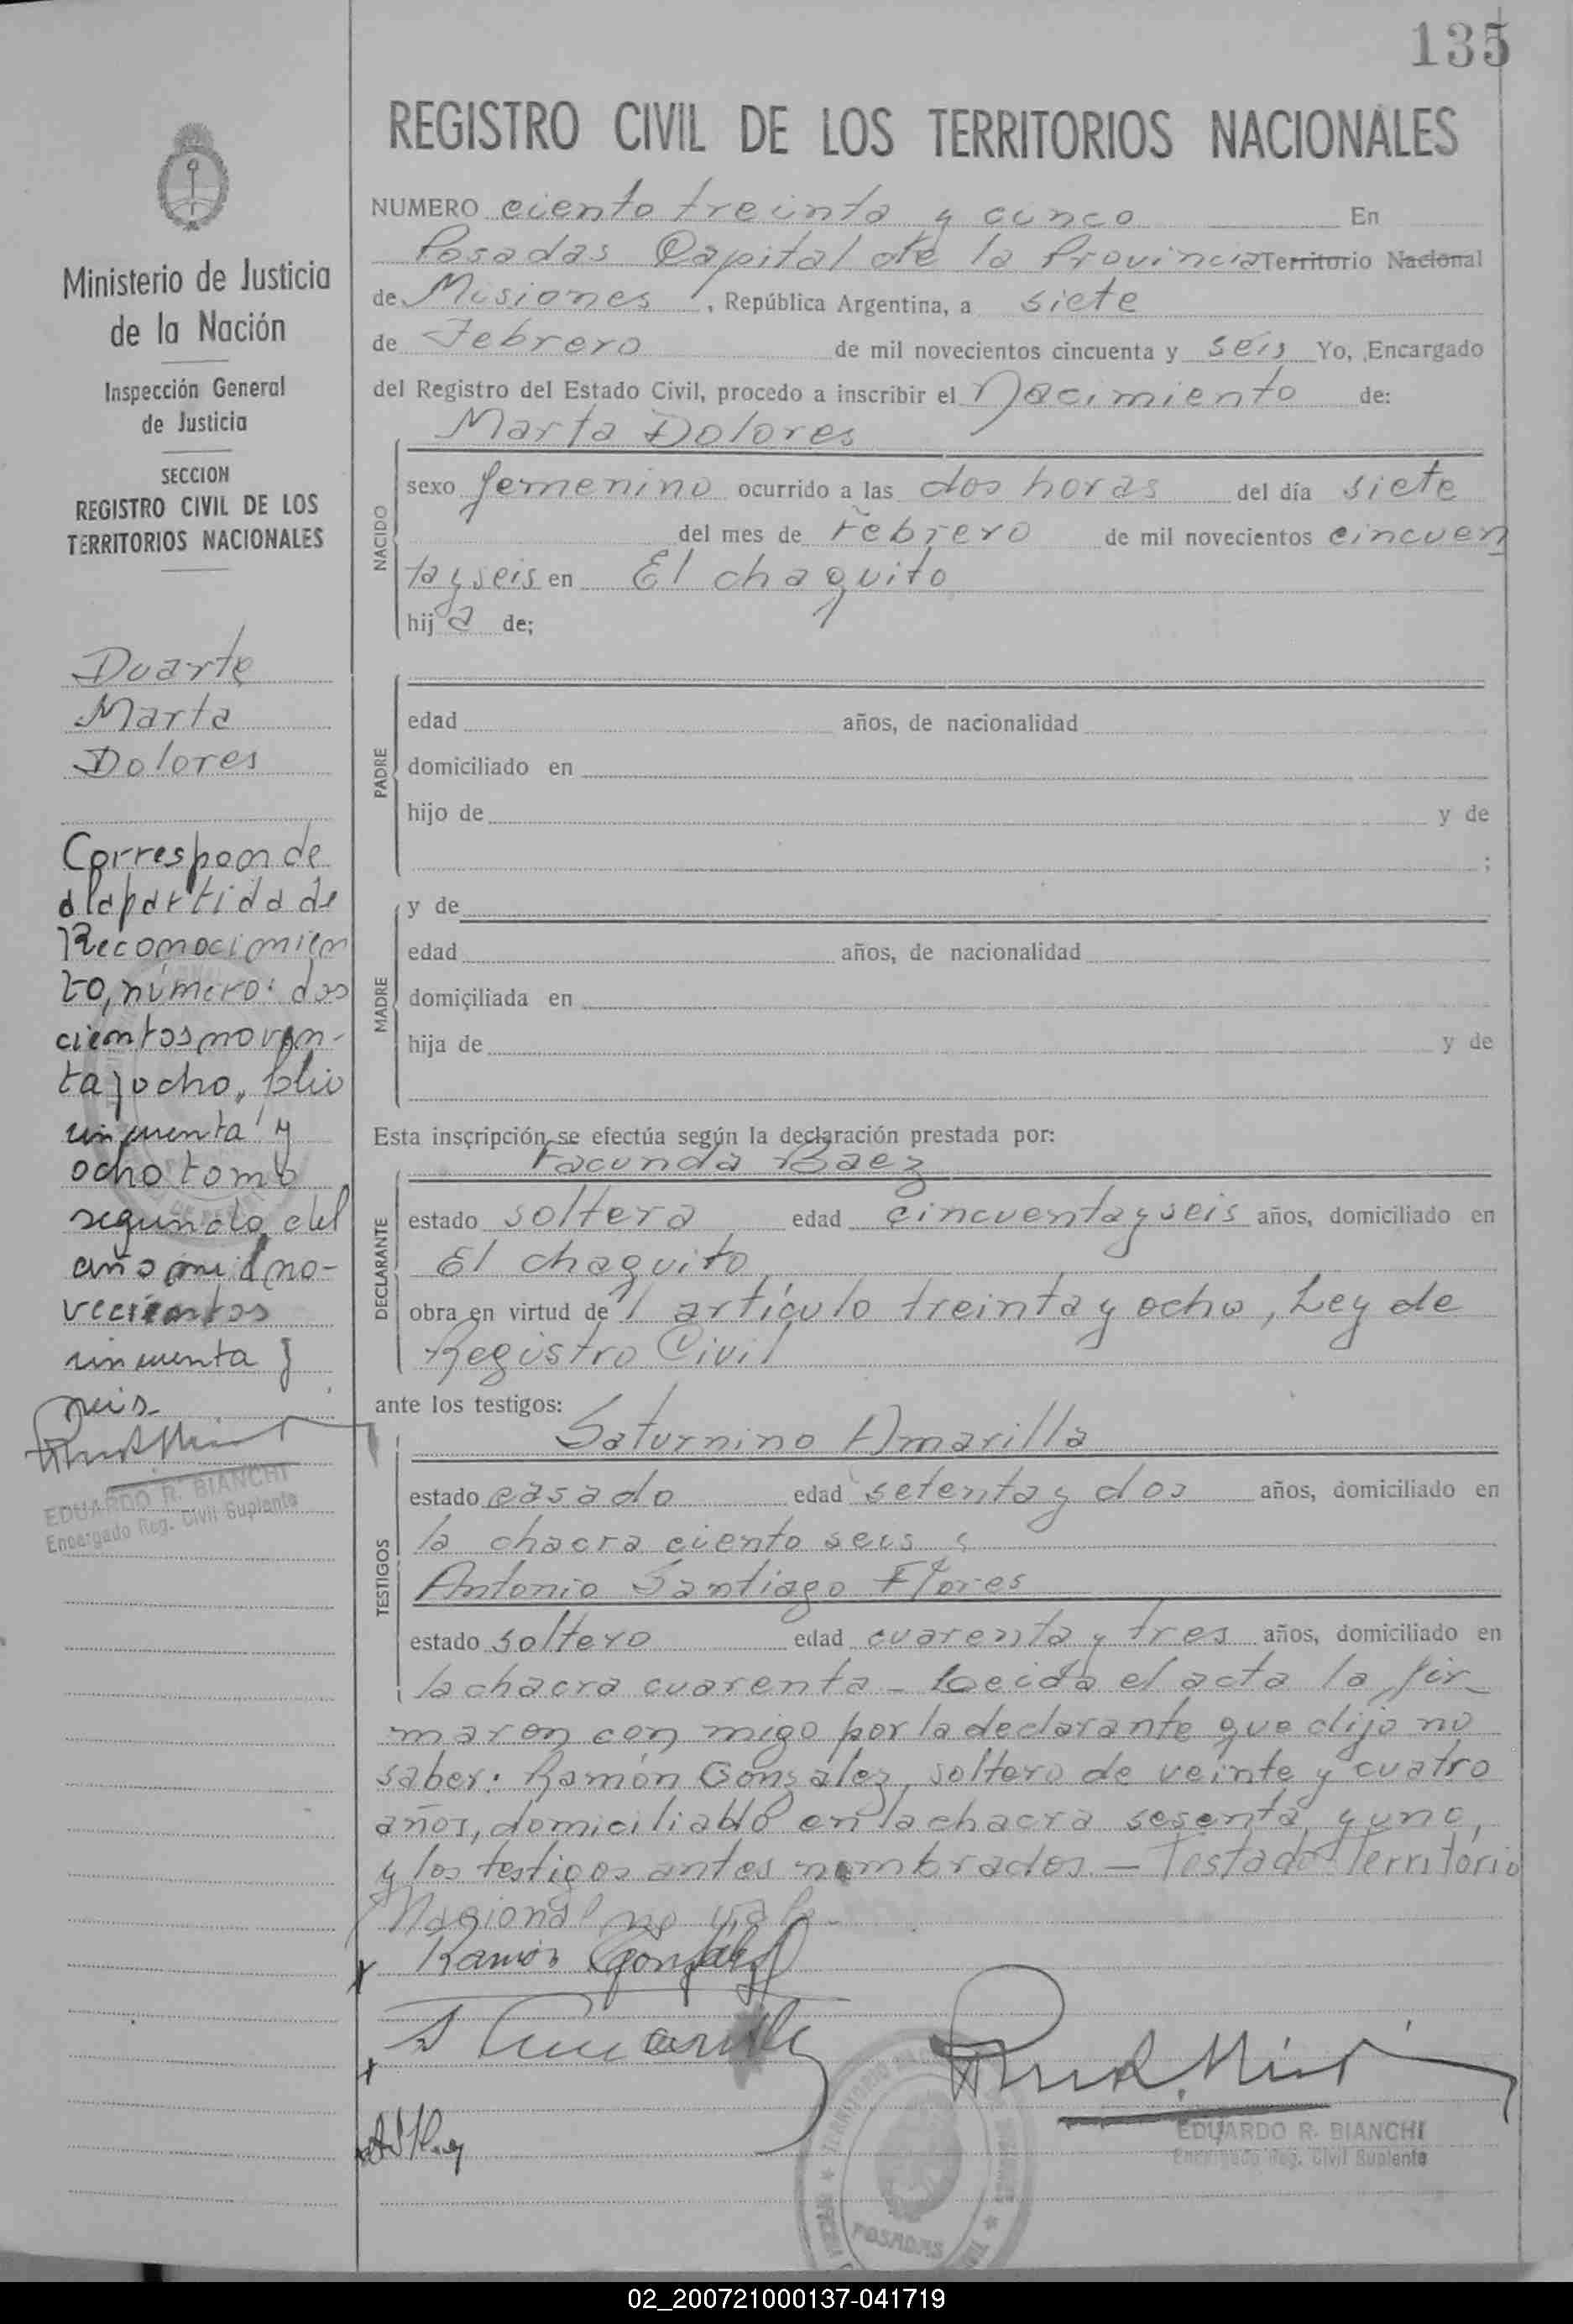 135
REGISTRO CIVIL DE LOS TERRITORIOS NACIONALES
Ministerio de Justicia
de la Nación
Inspección General
de Justicia
SECCION
REGISTRO CIVIL DE LOS
TERRITORIOS NACIONALES
Duarte
Marta
Dolores
Corresponde
a la partida de
Reconocimien
to, número: dos
cientos noven-
ta y ocho, folio
cincuenta y
ocho tomo
segundo, del
año mil no-
vecientos
cincuenta y
seis-
EDUARDO R. BIANCHI
Encargado Reg. Civil Suplente
NUMERO ciento treinta y cinco En
Posadas Capital de la Provincia Territorio Nacional
de Misiones, República Argentina, a siete
de Febrero de mil novecientos cincuenta y seis Yo, Encargado
del Registro del Estado Civil, procedo a inscribir el Nacimiento de:
Marta Dolores
NACIDO
sexo femenino ocurrido a las dos horas del día siete
del mes de Febrero de mil novecientos cincuen
ta y seis en El chaquito
hija de;
PADRE
edad años, de nacionalidad
domiciliado en
hijo de y de
;
MADRE
y de
edad años, de nacionalidad
domiciliada en
hija de y de
Esta inscripción se efectúa según la declaración prestada por:
Facunda Baez
DECLARANTE
estado soltera edad cincuenta y seis años, domiciliado en
El chaquito
obra en virtud del artículo treinta y ocho, Ley de
Registro Civil
ante los testigos:
Saturnino Amarilla
TESTIGOS
estado casado edad setenta y dos años, domiciliado en
la chacra ciento seis y
Antonio Santiago Flores
estado soltero edad cuarenta y tres años, domiciliado en
la chacra cuarenta - Leida el acta la fir-
maron con migo por la declarante que dijo no
saber: Ramón González, soltero de veinte y cuatro
años, domiciliado en la chacra sesenta y uno,
y los testigos antes nombrados. - Testado: Territorio
Nacional no vale-
Ramón González
S Amarilla
EDUARDO R. BIANCHI
Encargado Reg. Civil Suplente
POSADAS
02_200721000137-041719